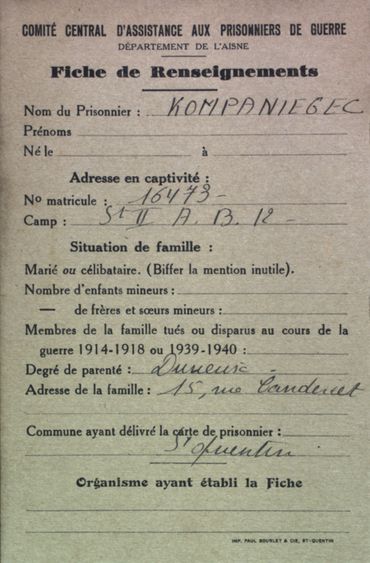 COMITÉ CENTRAL D'ASSISTANCE AUX PRISONNIERS DE GUERRE
DÉPARTEMENT DE L'AISNE
Fiche de Renseignements
Nom du Prisonnier : KOMPANIEGEC
Prénoms
Né le à
Adresse en captivité :
No matricule : 16473 -
Camp : St II A. B. 12 -
Situation de famille :
Marié ou célibataire. (Biffer la mention inutile).
Nombre d'enfants mineurs :
— de frères et sœurs mineurs :
Membres de la famille tués ou disparus au cours de la
guerre 1914-1918 ou 1939-1940 :
Degré de parenté :
Adresse de la famille : 15, rue
Commune ayant délivré la carte de prisonnier :
St Quentin
Organisme ayant établi la Fiche
IMP. PAUL BOURLET & CIE, ST-QUENTIN